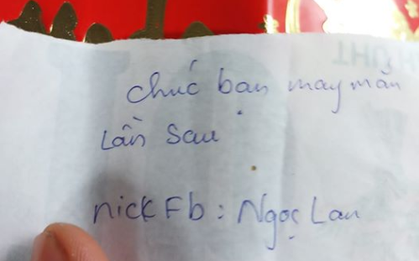 chúc bạn may mắn
Lần sau
nick Fb : Ngọc Lan
THUẬT